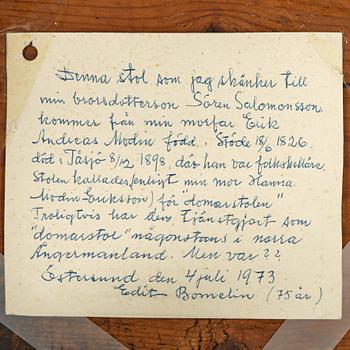 Denna stol som jag skänker till
min brorsdotterson Sören Salomonsson
kommer från min morfar Erik
Andreas Modin född i Stöde 18/6 1826.
död i Tåsjö 8/12 1898, där han var folkskollärare
Stolen kallades (enligt min mor Hanna
Modin Eriksson) för "domarstolen"
Troligtvis har den tjänstgjort som
"domarstol" någonstans i norra
Ångermanland. Men var??
Östersund den 4 juli 1973
Edit Bomelin (75 år)